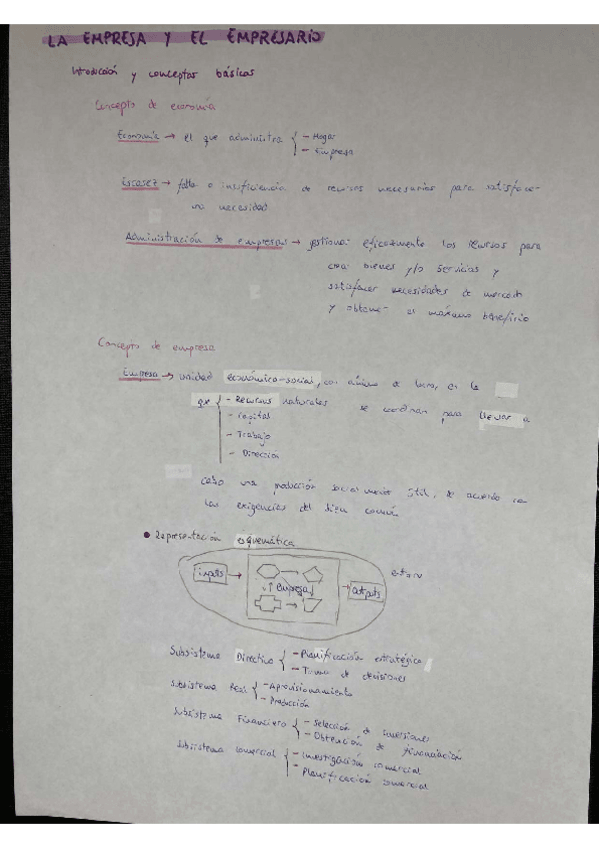 LA EMPRESA Y EL EMPRESARIO
Introducción y conceptos básicos
Concepto de economía
Economía → el que administra { - Hogar
- Empresa
Escasez → falta o insuficiencia de recursos necesarios para satisfacer
una necesidad
Administración de empresas → gestionar eficazmente los recursos para
crear bienes y/o servicios y
satisfacer necesidades de mercado
y obtener el máximo beneficio
Concepto de empresa
Empresa → unidad económico-social, con ánimo de lucro, en la
que { - Recursos naturales se coordinan para llevar a
- Capital
- Trabajo
- Dirección
cabo una producción socialmente útil, de acuerdo con
las exigencias del bien común.
• Representación esquemática
inputs → empresa → outputs
Subsistema Directivo { - Planificación estratégica
- Toma de decisiones
Subsistema Real { - Aprovisionamiento
- Producción
Subsistema Financiero { - Selección de inversiones
- Obtención de financiación
Subsistema comercial { - Investigación comercial
- Planificación comercial